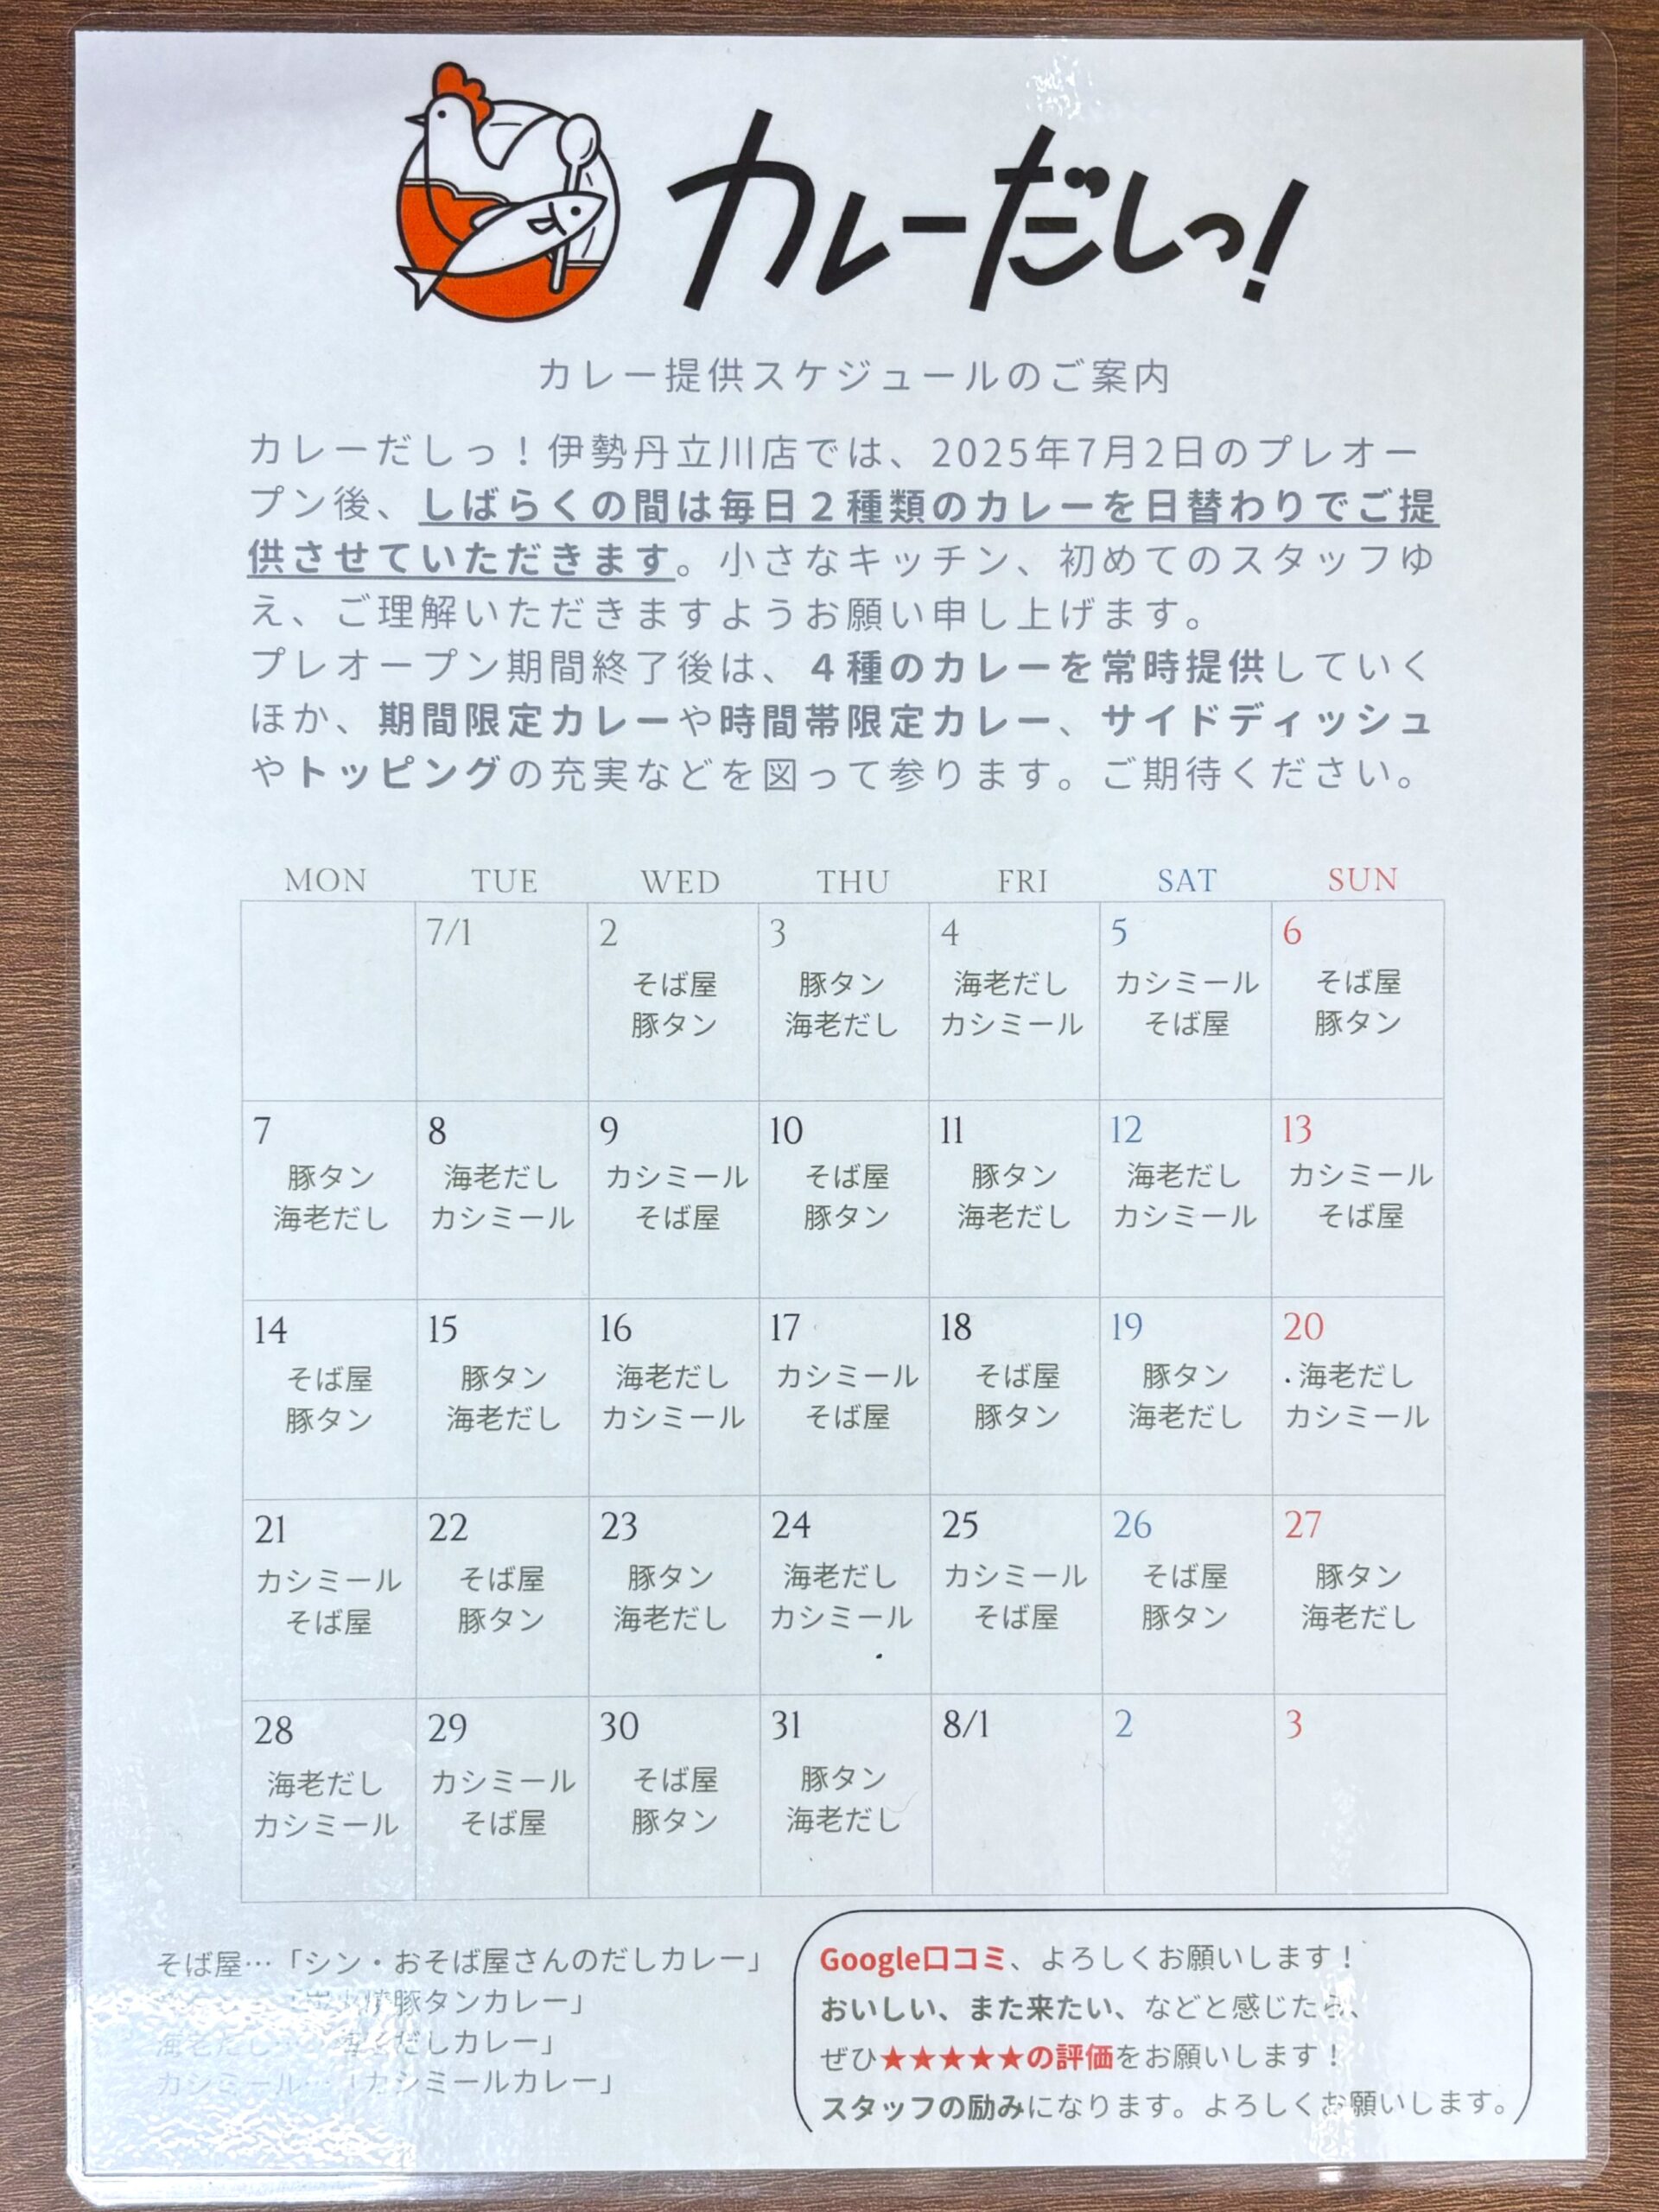 カレーだしっ!
カレー提供スケジュールのご案内
カレーだしっ！伊勢丹立川店では、2025年7月2日のプレオー
プン後、しばらくの間は毎日２種類のカレーを日替わりでご提
供させていただきます。小さなキッチン、初めてのスタッフゆ
え、ご理解いただきますようお願い申し上げます。
プレオープン期間終了後は、４種のカレーを常時提供していく
ほか、期間限定カレーや時間帯限定カレー、サイドディッシュ
やトッピングの充実などを図って参ります。ご期待ください。
MON TUE WED THU FRI SAT SUN
7/1 2 3 4 5 6
そば屋 豚タン 海老だし カシミール そば屋
豚タン 海老だし カシミール そば屋 豚タン
7 8 9 10 11 12 13
豚タン 海老だし カシミール そば屋 豚タン 海老だし カシミール
海老だし カシミール そば屋 豚タン 海老だし カシミール そば屋
14 15 16 17 18 19 20
そば屋 豚タン 海老だし カシミール そば屋 豚タン 海老だし
豚タン 海老だし カシミール そば屋 豚タン 海老だし カシミール
21 22 23 24 25 26 27
カシミール そば屋 豚タン 海老だし カシミール そば屋 豚タン
そば屋 豚タン 海老だし カシミール そば屋 豚タン 海老だし
28 29 30 31 8/1 2 3
海老だし カシミール そば屋 豚タン
カシミール そば屋 豚タン 海老だし
そば屋…「シン・おそば屋さんのだしカレー」
豚タンカレー」
海老だし… だしカレー」
カシミール…「カシミールカレー」
Google口コミ、よろしくお願いします！
おいしい、また来たい、などと感じたら、
ぜひ★★★★★の評価をお願いします！
スタッフの励みになります。よろしくお願いします。